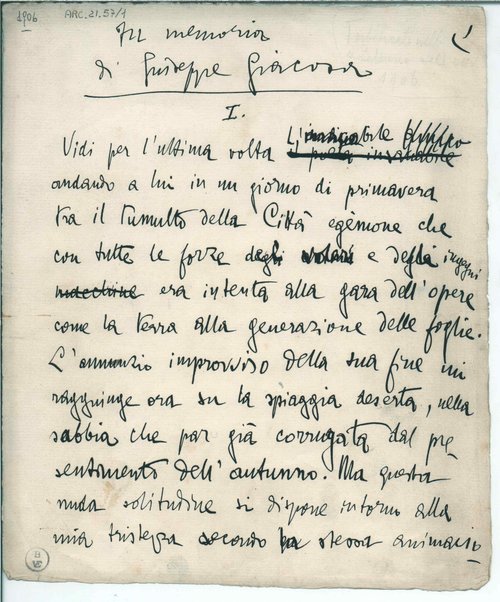 1906
ARC.21.57/1
In memoria
di Giuseppe Giacosa
I.
Vidi per l'ultima volta
andando a lui in un giorno di primavera
tra il tumulto della Città egèmone che
con tutte le forze degli e degli ingegni
macchine era intenta alla gara dell'opere
come la terra alla generazione delle foglie.
L'annunzio improvviso della sua fine mi
raggiunge ora su la spiaggia deserta, nella
sabbia che par già corrugata dal pre-
sentimento dell'autunno. Ma questa
nuda solitudine si dispone intorno alla
mia tristezza secondo la stessa